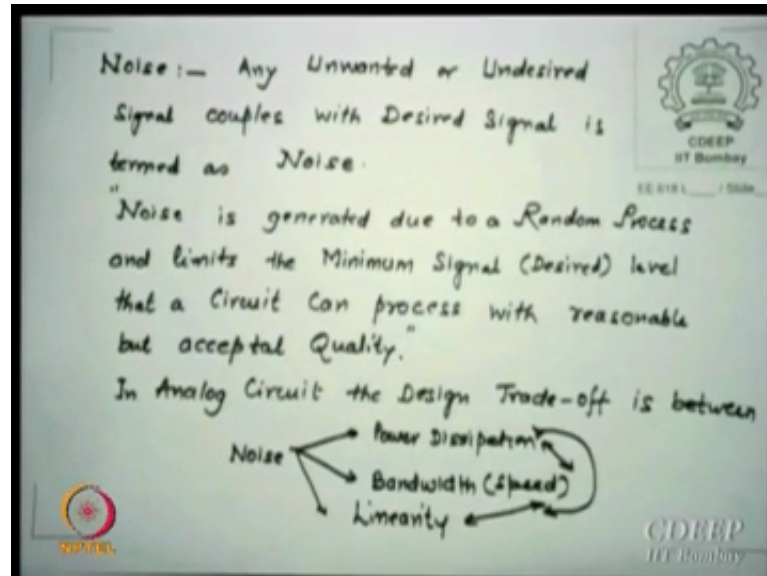 Noise :- Any Unwanted or Undesired
Signal couples with Desired Signal is
termed as Noise.
"Noise is generated due to a Random Process
and limits the Minimum Signal (Desired) level
that a Circuit Can process with reasonable
but acceptal Quality."
In Analog Circuit the Design Trade-off is between
Noise
Power Dissipation
Bandwidth (Speed)
Linearity
CDEEP
IIT Bombay
EE 618 L / Slide
NPTEL
CDEEP
IIT Bombay